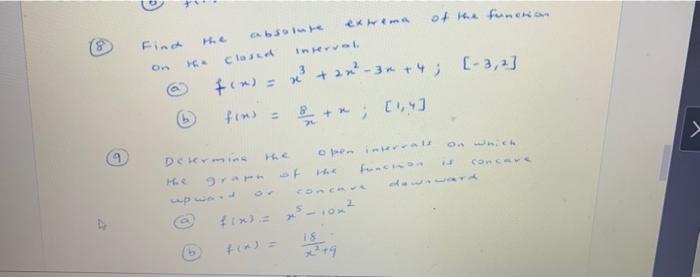 ⑧ Find the absolute extrema of the function
on the closed Interval.
ⓐ f(x) = x³ + 2x² - 3x + 4 ; [-3,2]
ⓑ f(x) = 8/x + x ; [1,4]
⑨ Determine the open intervals on which
the graph of the function is concave
upward or concave downward
ⓐ f(x) = x⁵ - 10x²
ⓑ f(x) = 18/x²+9